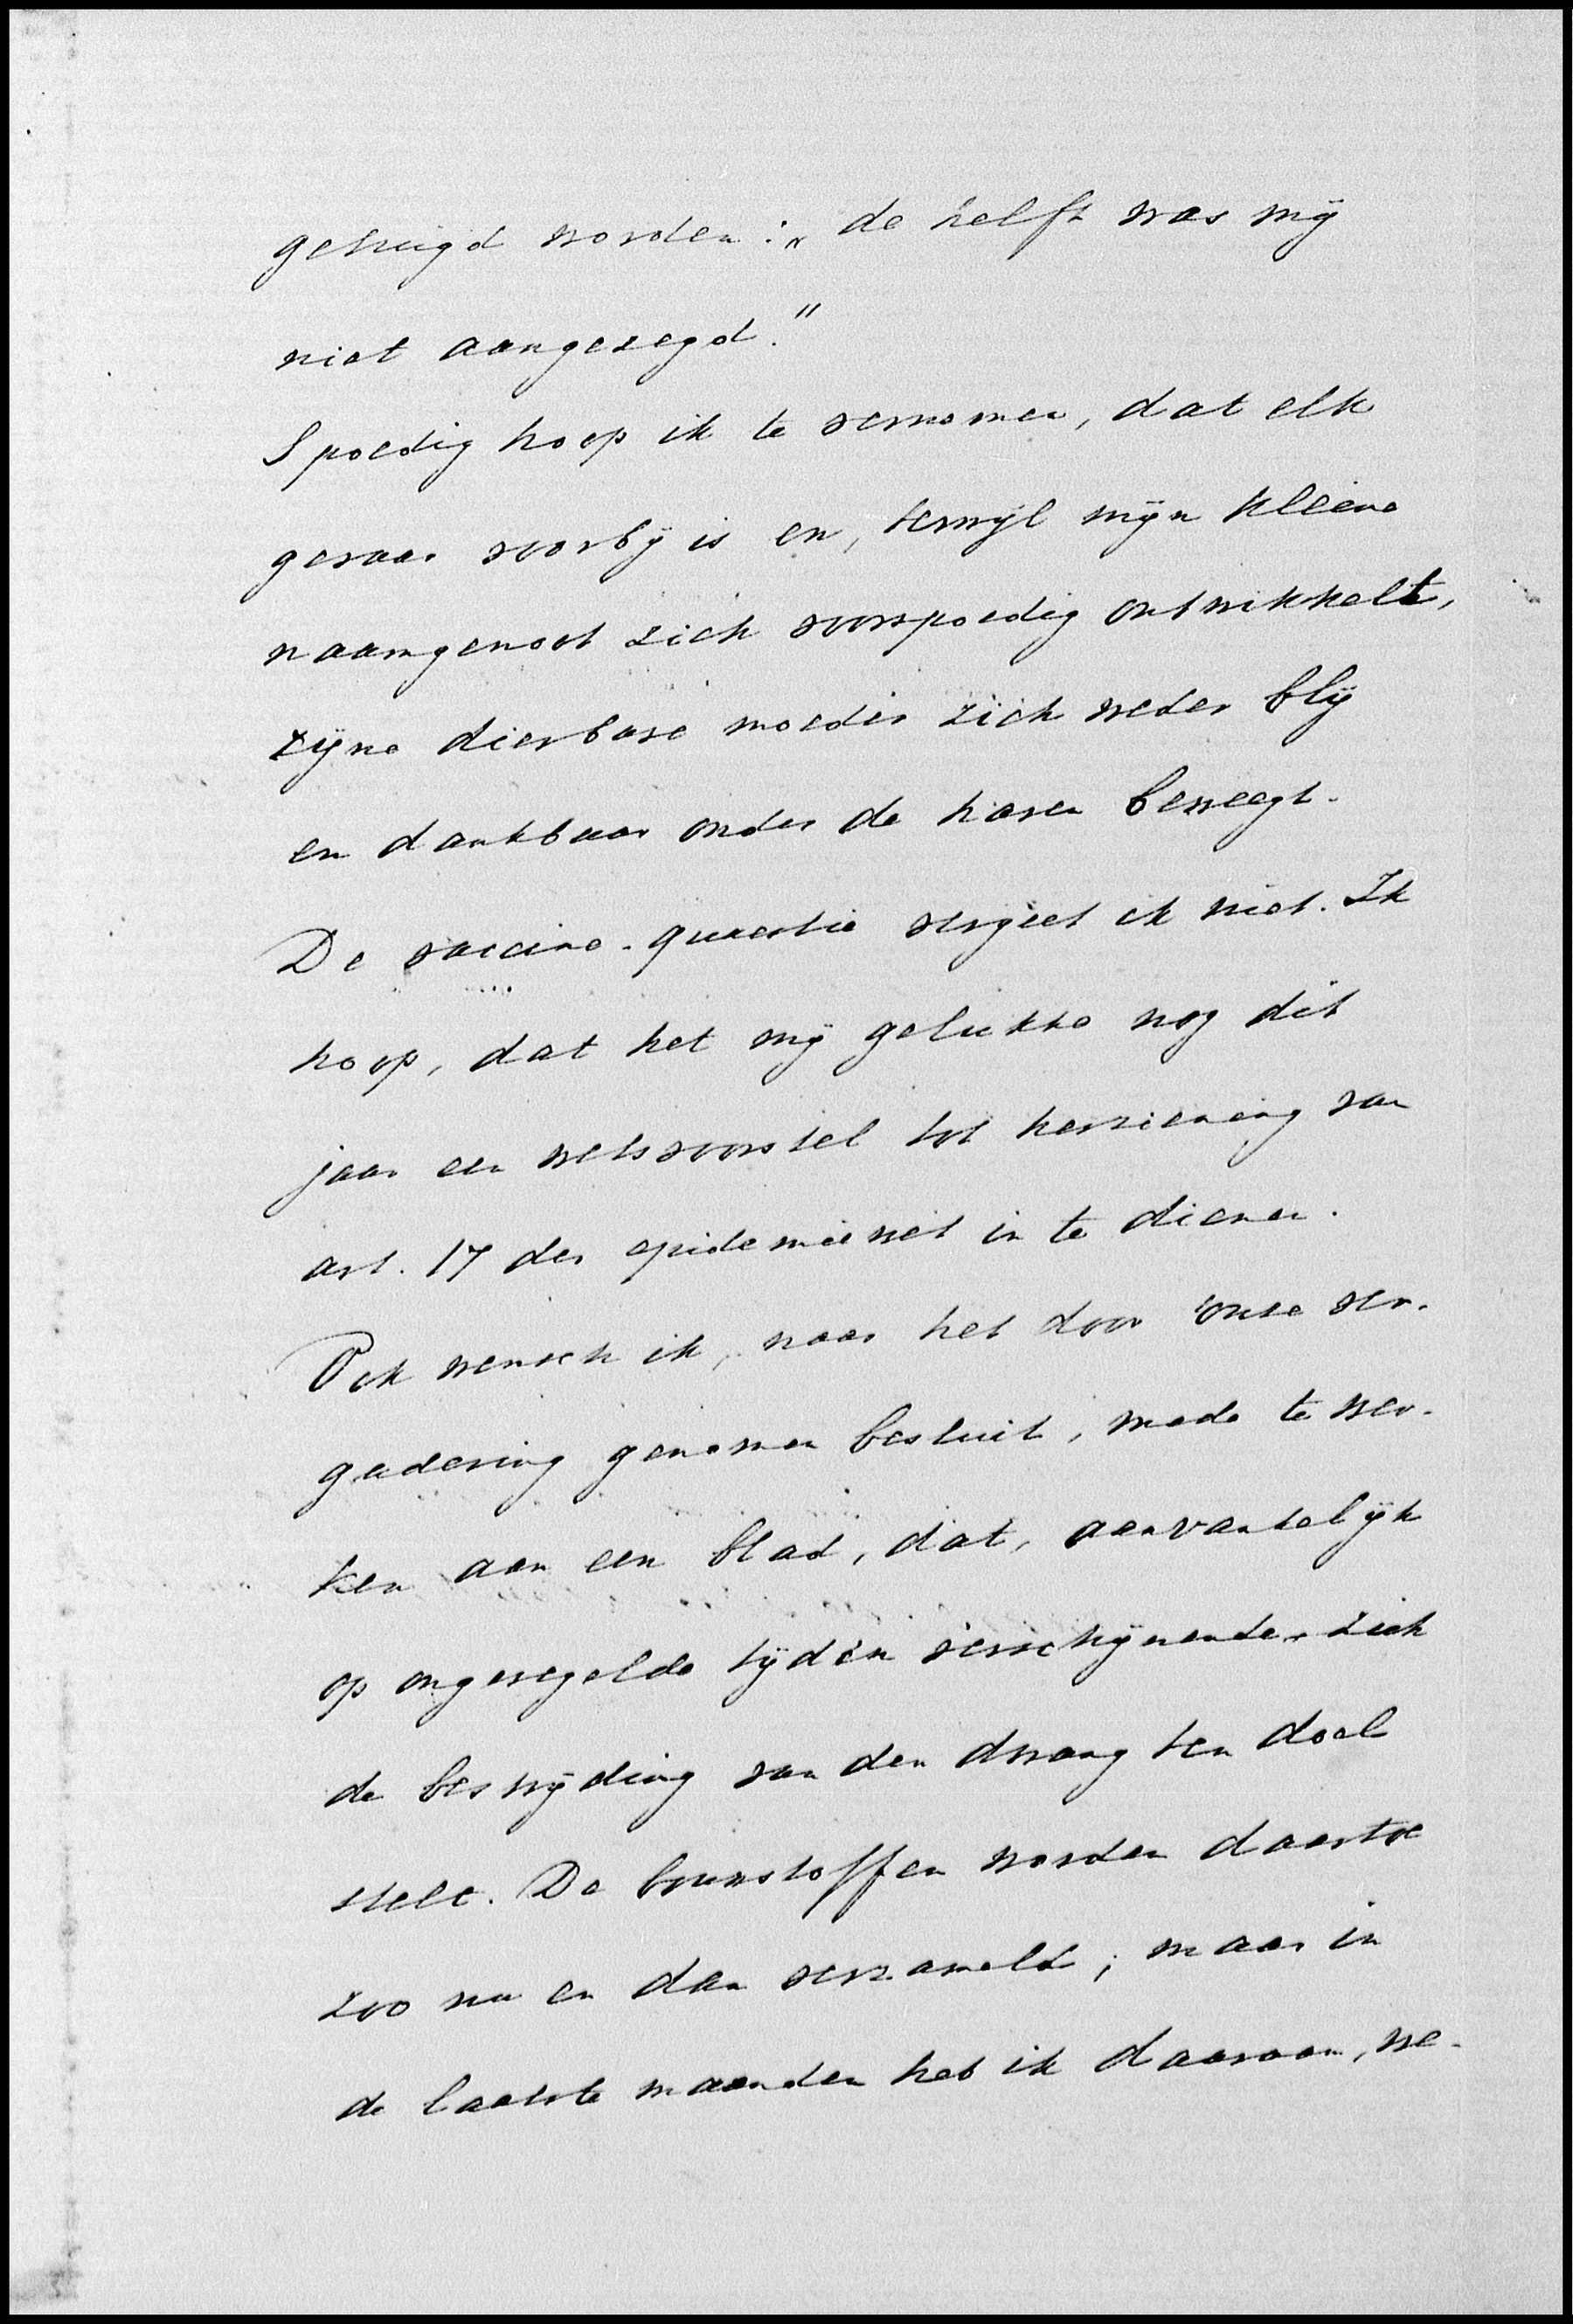 getuigd worden: „de helft was mij
niet aangezegd."
Spoedig hoop ik te vernemen, dat elk
gevaar voorbij is en, terwijl mijn kleine
naamgenoot zich voorspoedig ontwikkelt,
zijne dierbare moeder zich weder blij
en dankbaar onder de haren beweegt.
De vaccine-quaestie vergeet ik niet. Ik
hoop, dat het mij gelukke nog dit
jaar een wetsvoorstel tot herziening van
art. 17 der epidemiewet in te dienen.
Ook wensch ik, naar het door onze ver-
gadering genomen besluit, mede te wer-
ken aan een blad, dat, aanvankelijk
op ongeregelde tijden verschijnende, zich
de bestrijding van den dwang ten doel
stelt. De bouwstoffen worden daartoe
zoo nu en dan verzameld; maar in
de laatste maanden heb ik daaraan, we-